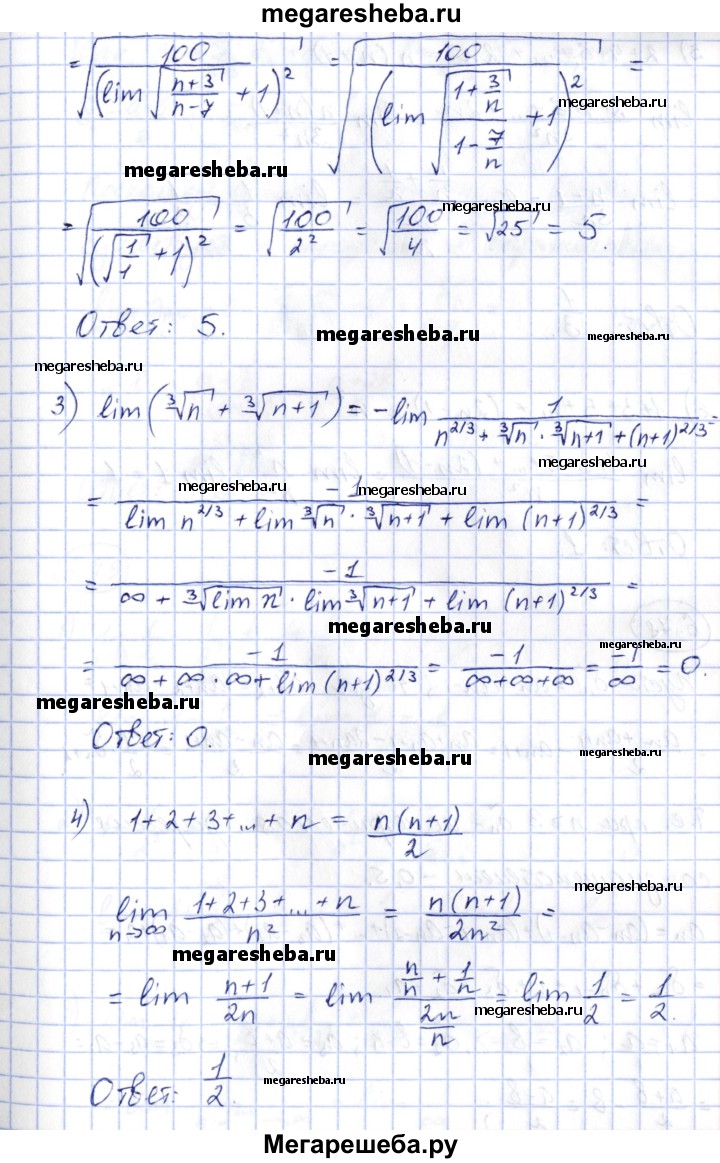 megaresheba.ru
= √(100/(lim √((n+3)/(n-7)) + 1)²) = √(100/(lim √((1+3/n)/(1-7/n)) + 1)²) =
megaresheba.ru
megaresheba.ru
= √(100/(√(1/1) + 1)²) = √(100/2²) = √(100/4) = √25 = 5.
megaresheba.ru
Ответ: 5.
megaresheba.ru
megaresheba.ru
megaresheba.ru
3) lim(∛n + ∛(n+1)) = -lim 1/(n^(2/3) + ∛n · ∛(n+1) + (n+1)^(2/3)) =
megaresheba.ru
megaresheba.ru
megaresheba.ru
= -1/(lim n^(2/3) + lim ∛n · ∛(n+1) + lim (n+1)^(2/3)) =
= -1/(∞ + ∛(lim n) · lim ∛(n+1) + lim (n+1)^(2/3)) =
megaresheba.ru
megaresheba.ru
= -1/(∞ + ∞ · ∞ + lim (n+1)^(2/3)) = -1/(∞+∞+∞) = -1/∞ = 0.
megaresheba.ru
Ответ: 0.
megaresheba.ru
megaresheba.ru
4) 1+2+3+...+n = n(n+1)/2
megaresheba.ru
lim n→∞ (1+2+3+...+n)/n² = n(n+1)/2n² =
megaresheba.ru
= lim (n+1)/2n = lim (n/n + 1/n)/(2n/n) = lim 1/2 = 1/2.
megaresheba.ru
Ответ: 1/2.
megaresheba.ru
Мегарешеба.ру